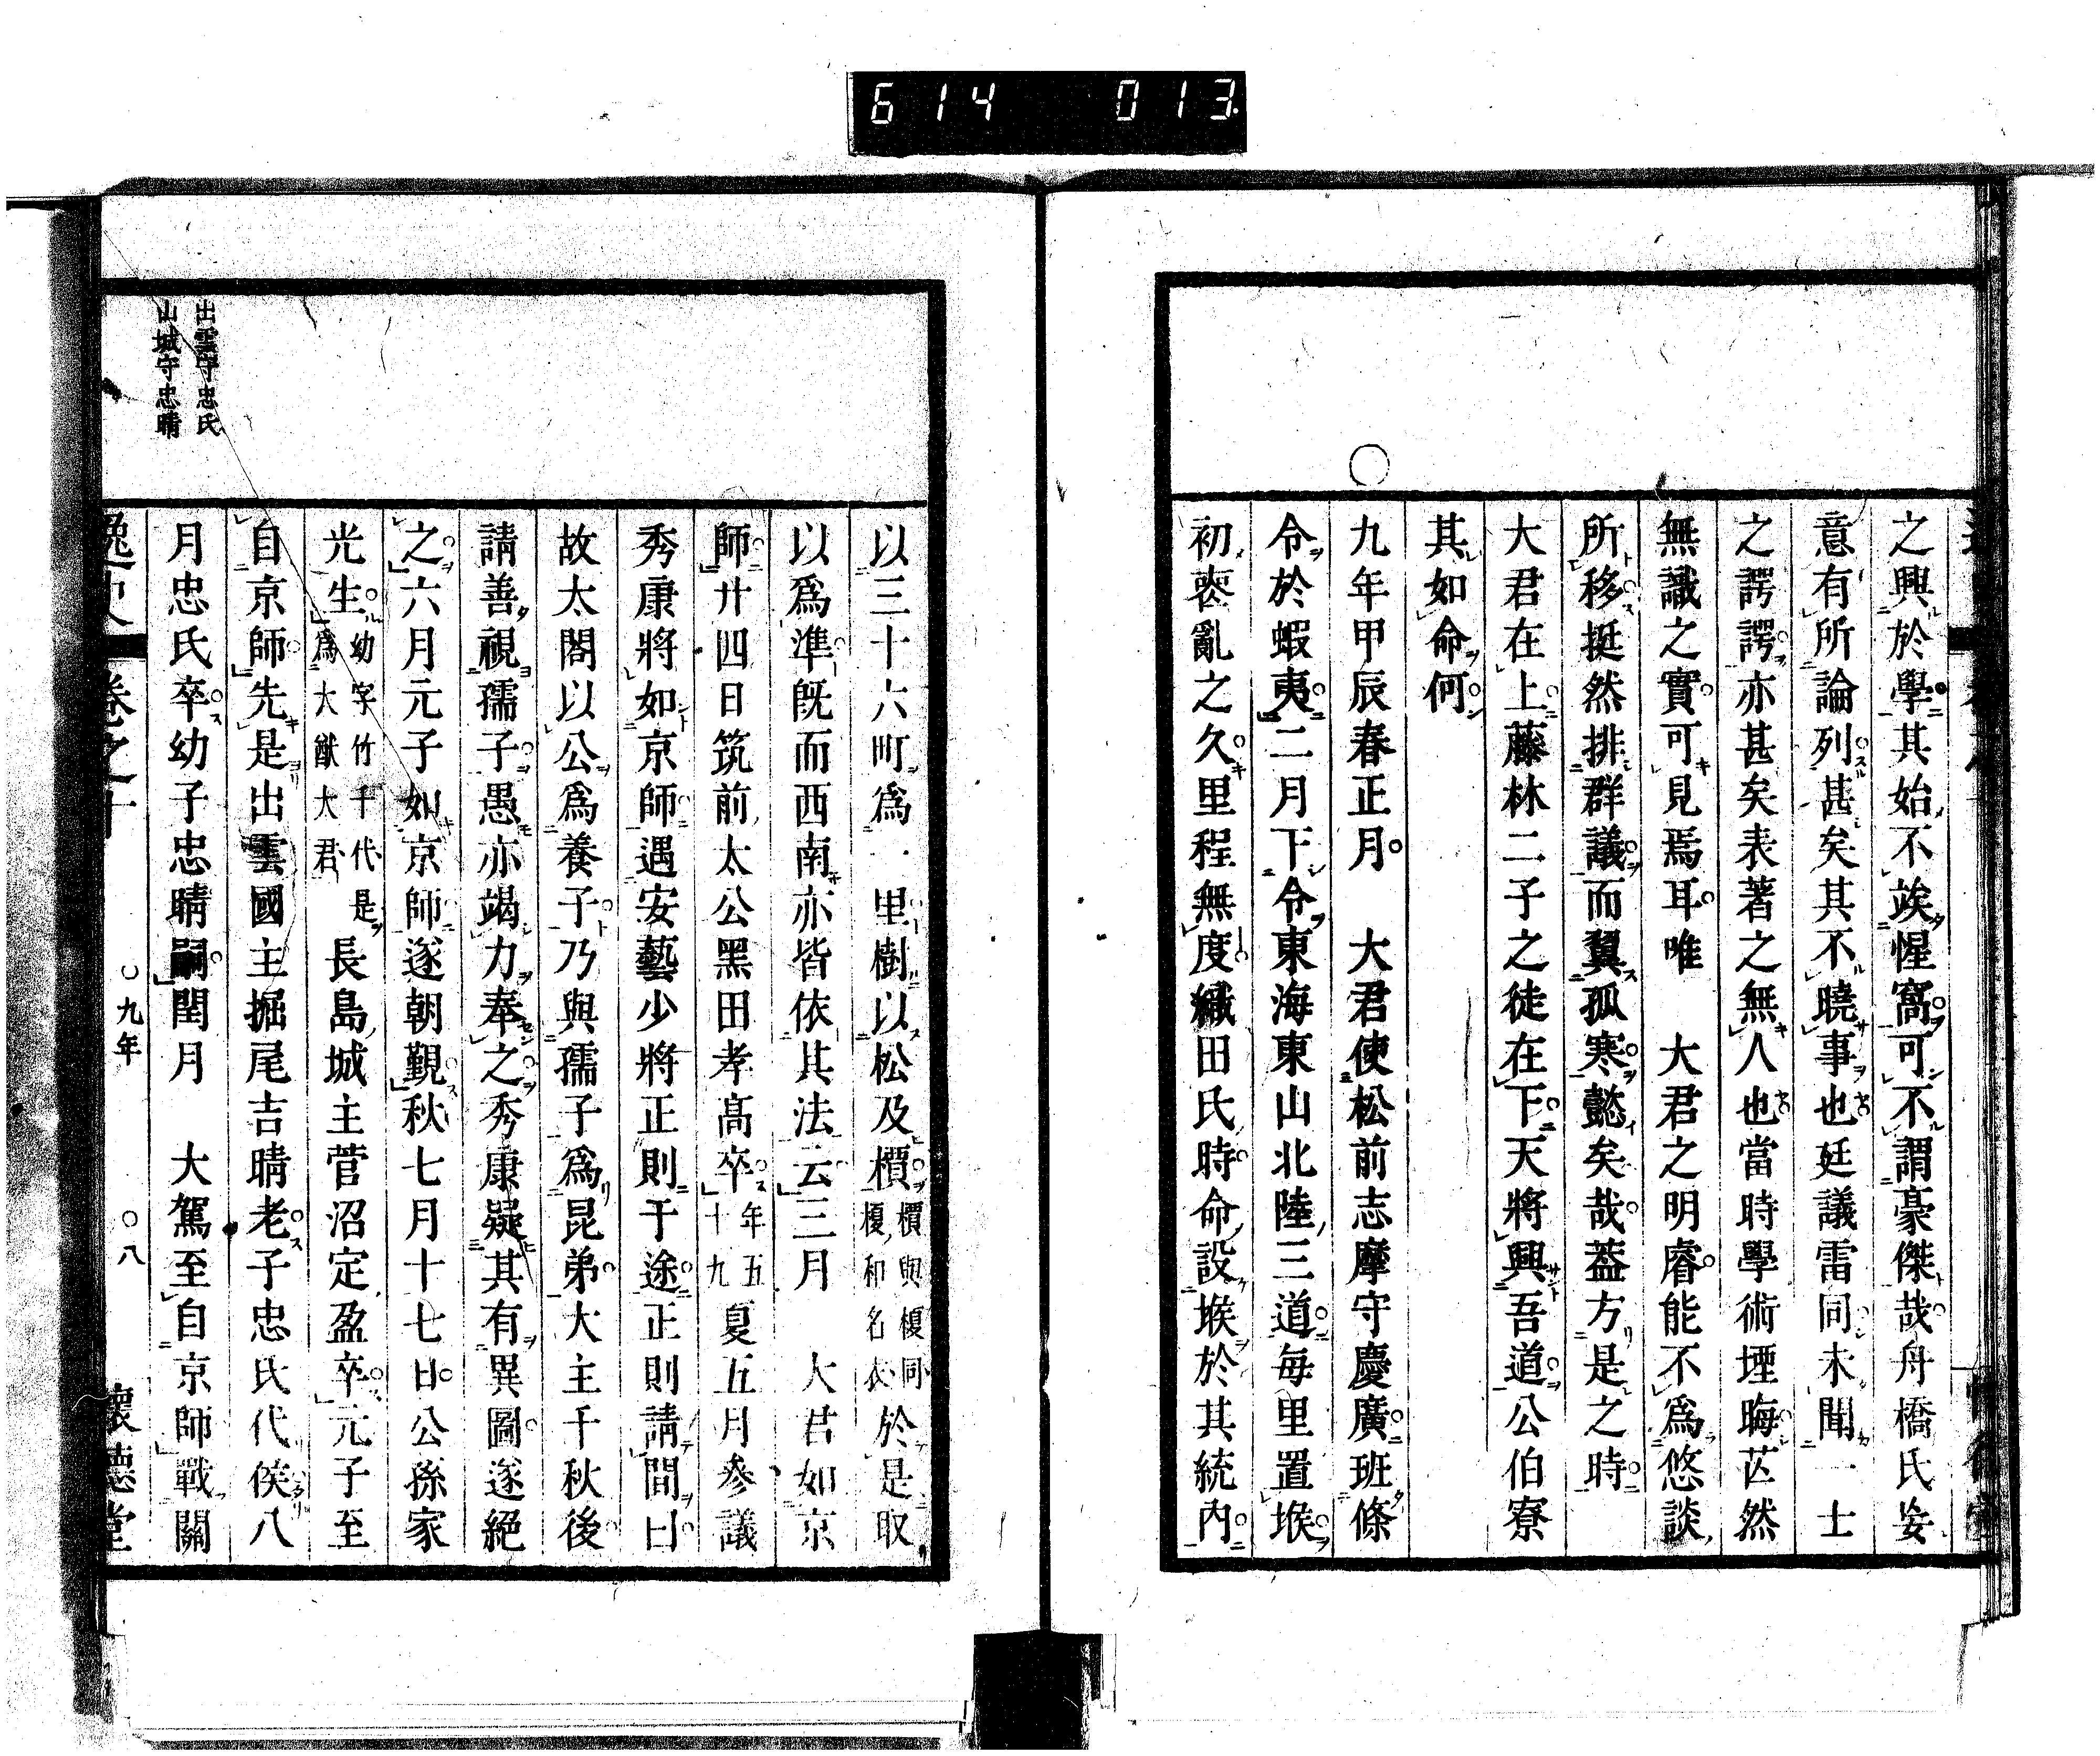 614 013
之興於學其始不竢惺窩可不謂豪傑哉舟橋氏妄
意有所論列甚矣其不曉事也廷議雷同未聞一士
之諤諤亦甚矣表著之無人也當時學術堙晦芒然
無識之實可見焉耳唯　大君之明睿能不爲悠談
所移挺然排群議而翼孤寒懿矣哉蓋方是之時
大君在上藤林二子之徒在下天將興吾道公伯寮
其如命何
〇
九年甲辰春正月　大君使松前志摩守慶廣班條
令於蝦夷二月下令東海東山北陸三道每里置堠
初喪亂之久里程無度織田氏時命設堠於其統內
以三十六町爲一里樹以松及檟檟與榎同榎和名衣於是取
以爲準既而西南亦皆依其法云三月　大君如京
師廿四日筑前太公黑田孝高卒年五十九夏五月參議
秀康將如京師遇安藝少將正則于途正則請間曰
故太閤以公爲養子乃與孺子爲昆弟大主千秋後
請善視孺子愚亦竭力奉之秀康疑其有異圖遂絕
之六月元子如京師遂朝覲秋七月十七日公孫家
光生幼字竹千代是爲大猷大君長島城主菅沼定盈卒元子至
自京師先是出雲國主掘尾吉晴老子忠氏代侯八
月忠氏卒幼子忠晴嗣閏月　大駕至自京師戰關
出雲守忠氏
山城守忠晴
逸史 卷之十 〇九年 〇八 懷德堂